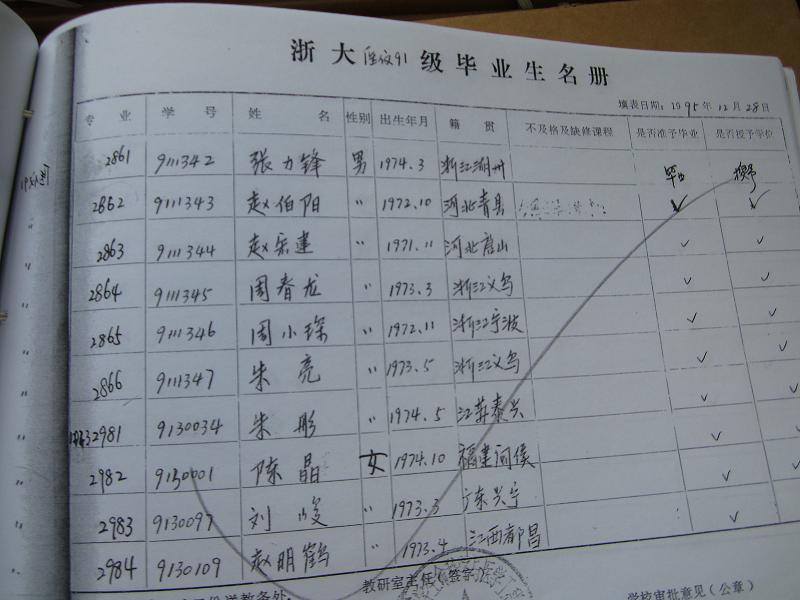 浙大 91 级毕业生名册
填表日期：1995年12月28日
专业 学号 姓名 性别 出生年月 籍贯 不及格及缺修课程 是否准予毕业 是否授予学位
2861 9111342 张力锋 男 1974.3 浙江湖州 毕业 授予
2862 9111343 赵伯阳 〃 1972.10 河北青县 ✓ ✓
2863 9111344 赵乐建 〃 1971.11 河北唐山 ✓ ✓
2864 9111345 周春龙 〃 1973.3 浙江义乌 ✓ ✓
2865 9111346 周小琛 〃 1972.11 浙江宁波 ✓ ✓
2866 9111347 朱亮 〃 1973.5 浙江义乌 ✓ ✓
2981 9130034 朱彤 〃 1974.5 江苏泰兴 ✓ ✓
2982 9130001 陈晶 女 1974.10 福建闽侯 ✓ ✓
2983 9130097 刘峻 〃 1973.3 广东兴宁 ✓ ✓
2984 9130109 赵明鹤 〃 1973.4 江西都昌 ✓
送教务处 教研室主任（签字） 学校审批意见（公章）